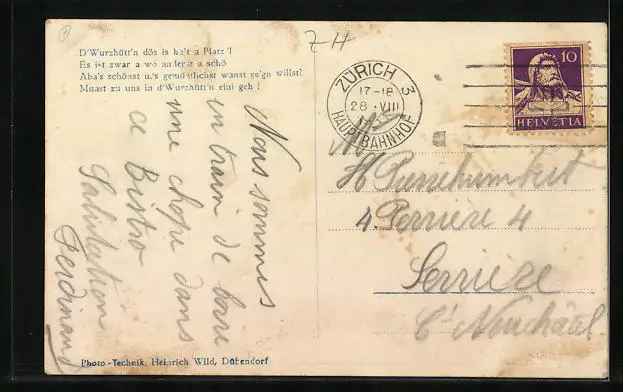 D'Wurzhütt'n dös is halt a Platz'l
Es ist zwar a wo anderst a schö
Aba's schönst u.'s gemütlichst wanst se'gn willst?
Muast zu uns in d'Wurzhütt'n eini geh !
ZH
ZÜRICH 3
17-18
28.VIII
HAUPTBAHNHOF
10
HELVETIA
Nous sommes
en train de boire
une chope dans
ce Bistro
Salutation
Ferdinand
H Perrenoud
4. Perrière 4
Serrières
Ct Neuchâtel
Photo-Technik: Heinrich Wild, Dübendorf